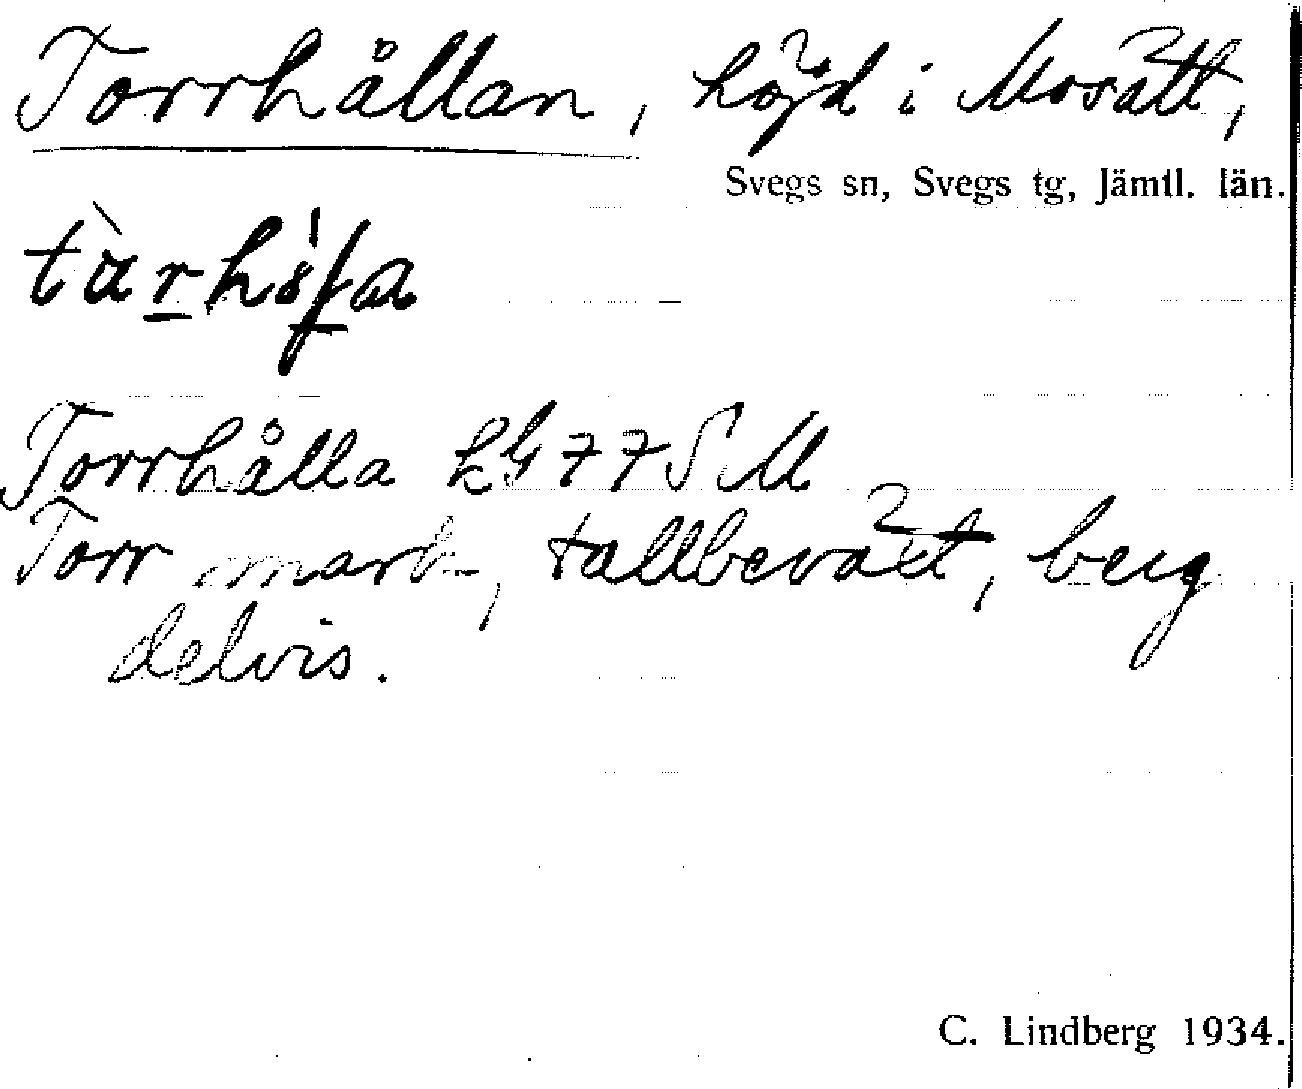 Torrhållan, höjd i Mosätt,
Svegs sn, Svegs tg, Jämtl. län.
Torrhålla kG 77 SM
Torr mark, tallbeväxt, berg
delvis.
C. Lindberg 1934.